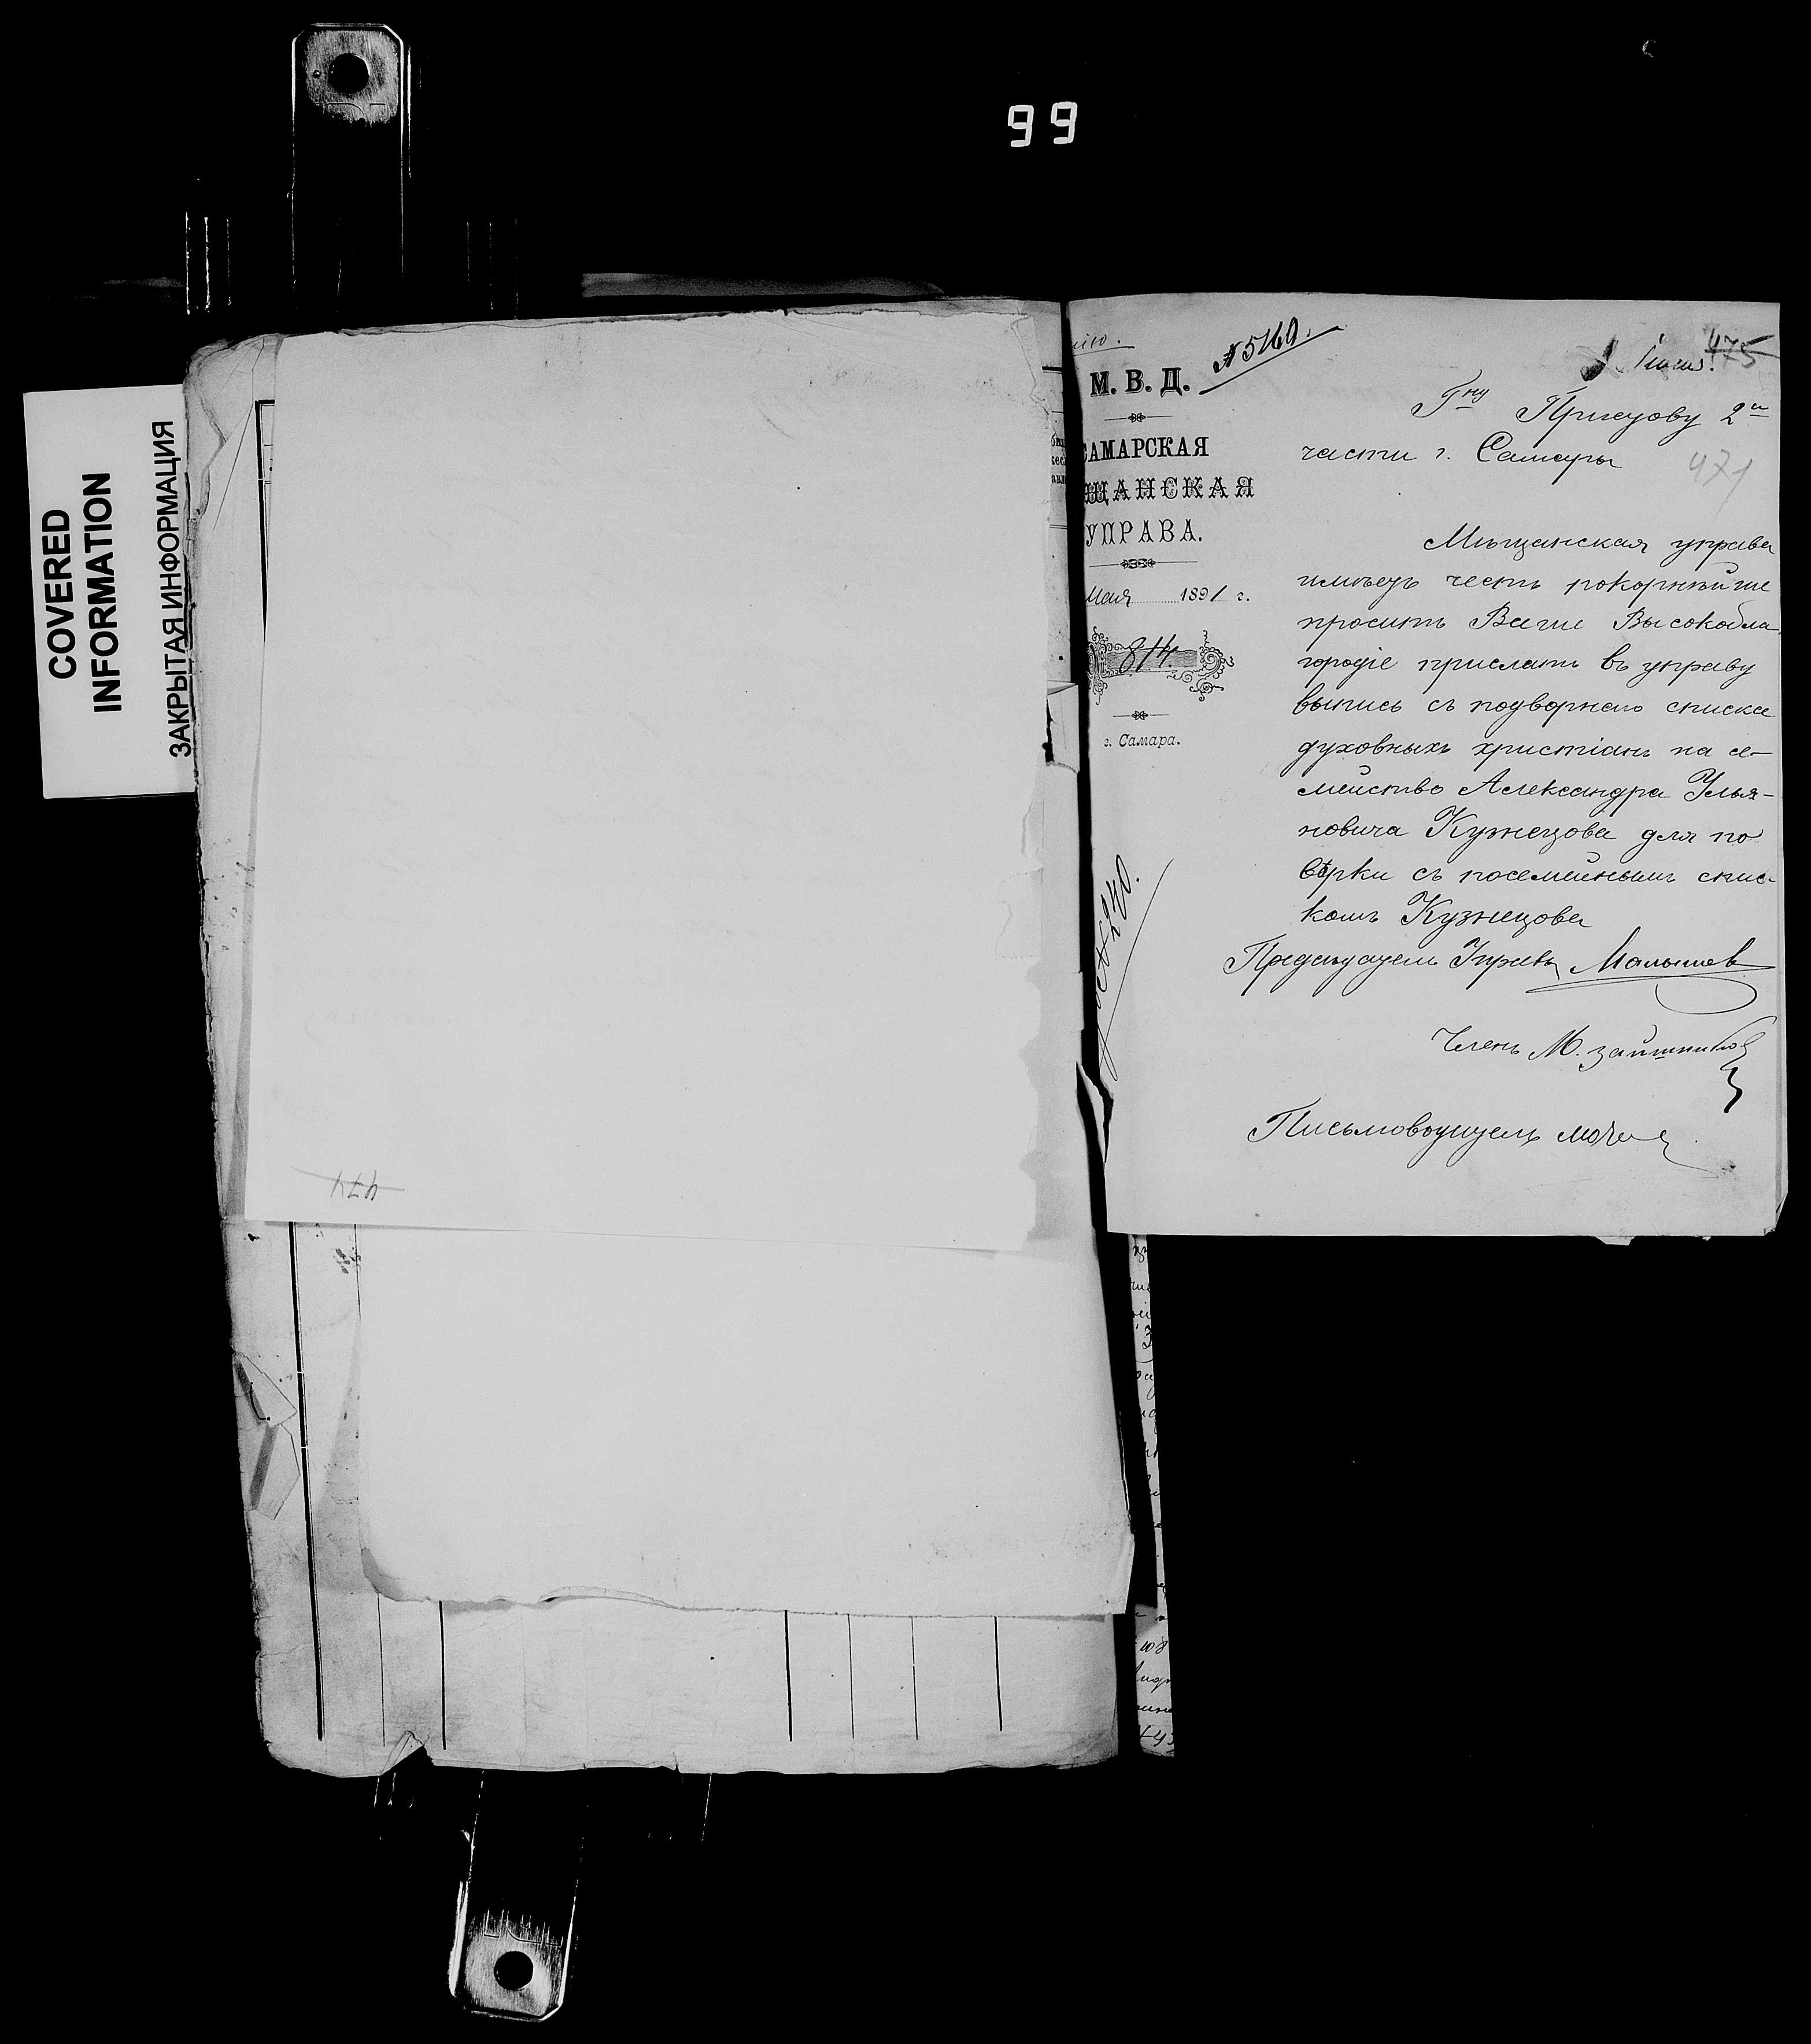 99
COVERED
INFORMATION
ЗАКРЫТАЯ ИНФОРМАЦИЯ
474
№ 5160.
475
М. В. Д.
САМАРСКАЯ
ЩАНСКАЯ
УПРАВА.
Мая 1891 г.
814.
г. Самара.
Г ну Приставу 2й
части г. Самары
471
Мѣщанская управа
имѣетъ честь покорнѣйше
просить Ваше Высокобла-
городіе прислать въ управу
выпись съ подворнаго списка
духовныхъ христіанъ на се-
мейство Александра Улья-
новича Кузнецова для по
вѣрки съ посемейнымъ спис-
комъ Кузнецова
Предсѣдатель Управы Малышев
Членъ М.
Письмоводитель